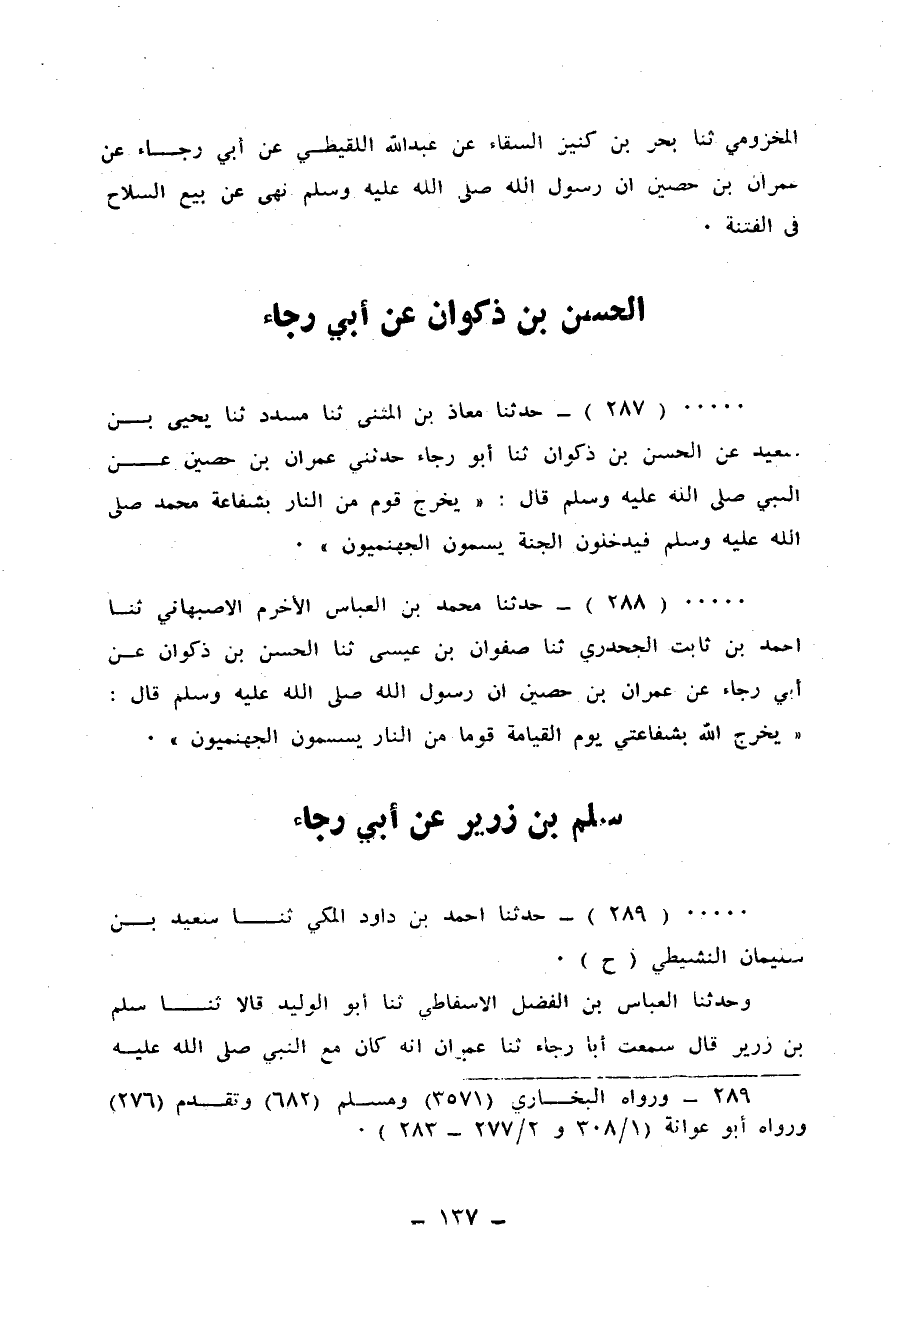 المخزومي ثنا بحر بن كنيز السقاء عن عبدالله اللقيطي عن أبي رجاء عن
عمران بن حصين ان رسول الله صلى الله عليه وسلم نهى عن بيع السلاح
في الفتنة ٠
الحسن بن ذكوان عن أبي رجاء
٠٠٠٠٠ ( ٢٨٧ ) ــ حدثنا معاذ بن المثنى ثنا مسدد ثنا يحيى بن
سعيد عن الحسن بن ذكوان ثنا أبو رجاء حدثني عمران بن حصين عن
النبي صلى الله عليه وسلم قال : « يخرج قوم من النار بشفاعة محمد صلى
الله عليه وسلم فيدخلون الجنة يسمون الجهنميون » ٠
٠٠٠٠٠ ( ٢٨٨ ) ــ حدثنا محمد بن العباس الأخرم الاصبهاني ثنا
احمد بن ثابت الجحدري ثنا صفوان بن عيسى ثنا الحسن بن ذكوان عن
أبي رجاء عن عمران بن حصين ان رسول الله صلى الله عليه وسلم قال :
« يخرج الله بشفاعتي يوم القيامة قوما من النار يسمون الجهنميون » ٠
سلم بن زرير عن أبي رجاء
٠٠٠٠٠ ( ٢٨٩ ) ــ حدثنا احمد بن داود المكي ثنا سعيد بن
سليمان النشيطي ( ح ) ٠
وحدثنا العباس بن الفضل الاسفاطي ثنا أبو الوليد قالا ثنا سلم
بن زرير قال سمعت أبا رجاء ثنا عمران انه كان مع النبي صلى الله عليه
٢٨٩ ــ ورواه البخاري (٣٥٧١) ومسلم (٦٨٢) وتقدم (٢٧٦)
ورواه أبو عوانة (٣٠٨/١ و ٢٧٧/٢ ــ ٢٨٣ ) ٠
ــ ١٣٧ ــ